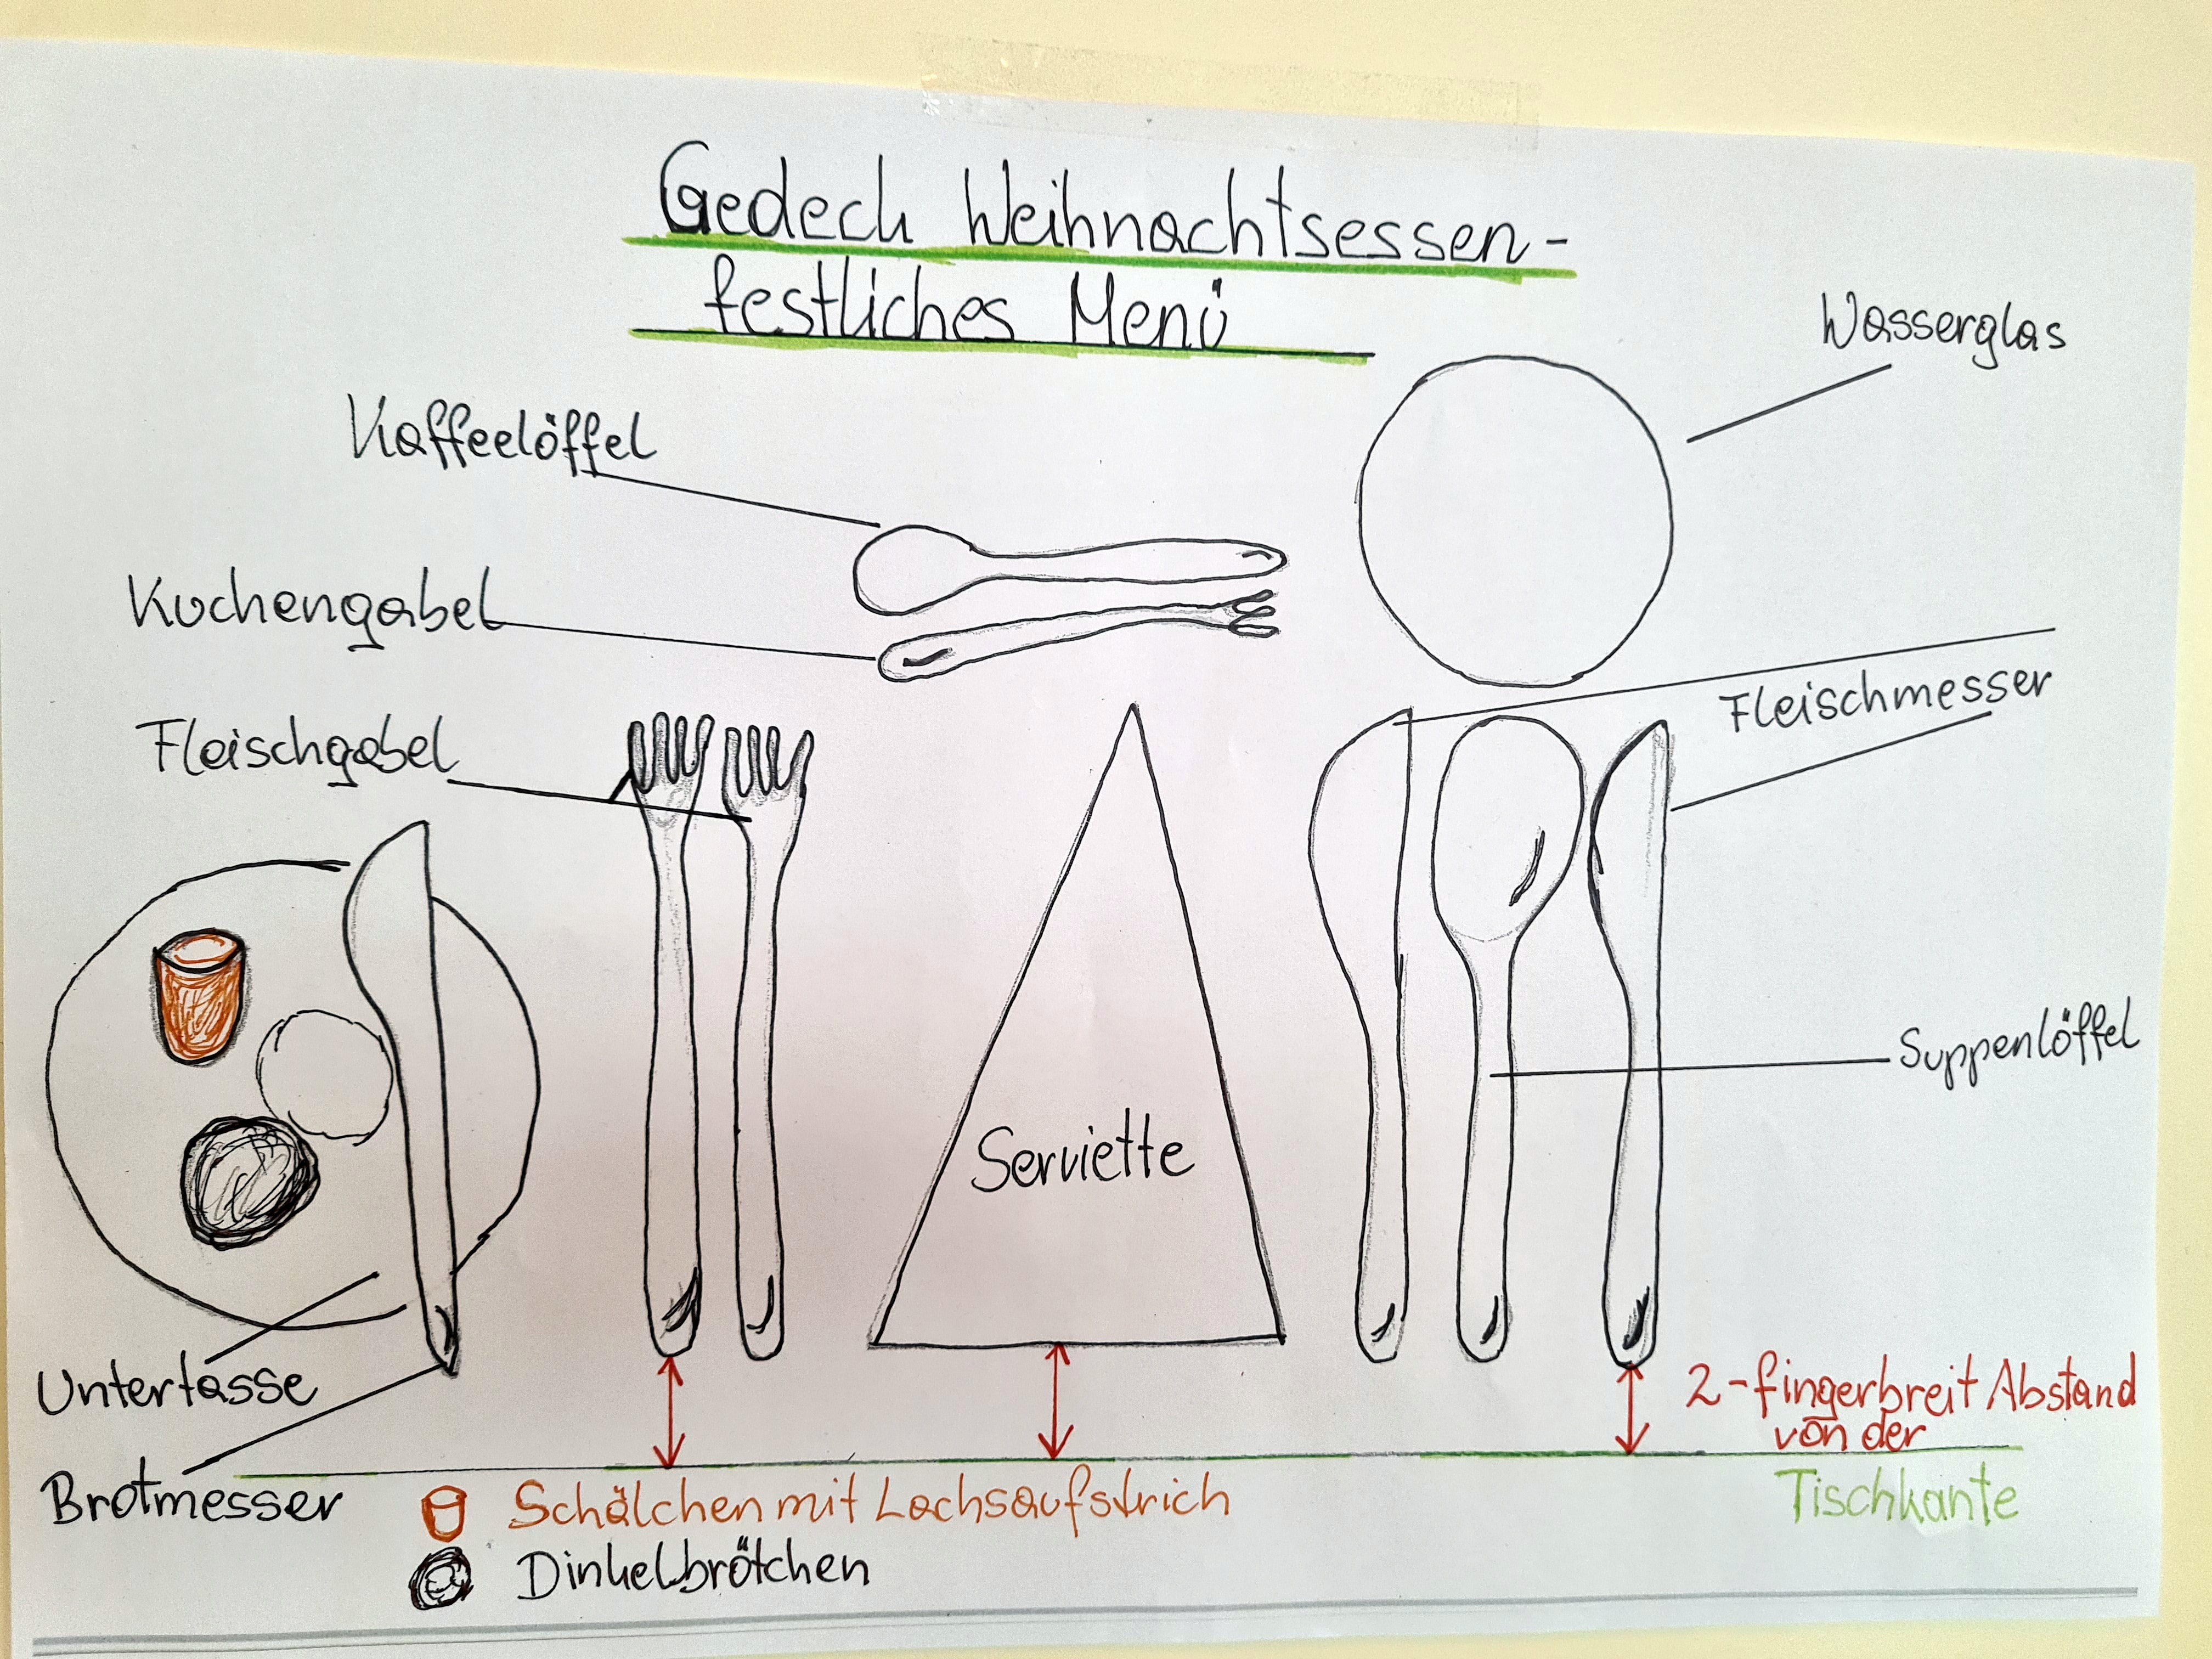 Gedeck Weihnachtsessen-
festliches Menü
Wasserglas
Kaffeelöffel
Kuchengabel
Fleischmesser
Fleischgabel
Suppenlöffel
Serviette
Untertasse
2-fingerbreit Abstand
von der
Tischkante
Brotmesser
Schälchen mit Lachsaufstrich
Dinkelbrötchen